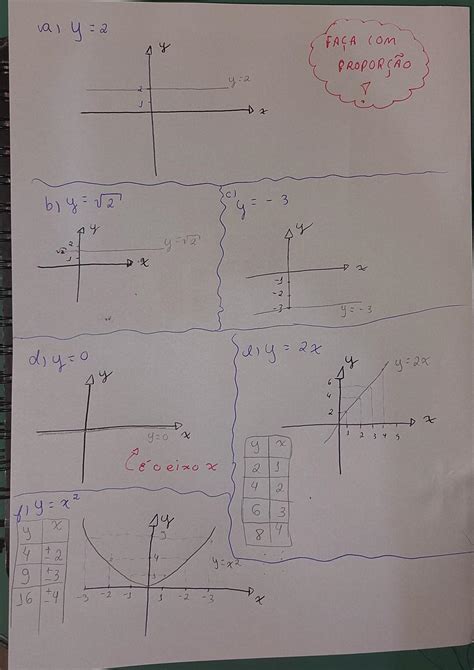 a) y = 2
FAÇA COM
PROPORÇÃO
!
y
y=2
2
1
x
b) y = √2
y
√2 2
1
y=√2
x
c) y = -3
y
x
-1
-2
-3
y=-3
d) y=0
y
y=0
x
é o eixo x
e) y = 2x
y
y=2x
6
4
2
1 2 3 4 5
x
y x
2 1
4 2
6 3
8 4
f) y = x²
y x
4 ±2
9 ±3
16 ±4
y
9
4
1
y=x²
-3 -2 -1 1 2 3
x